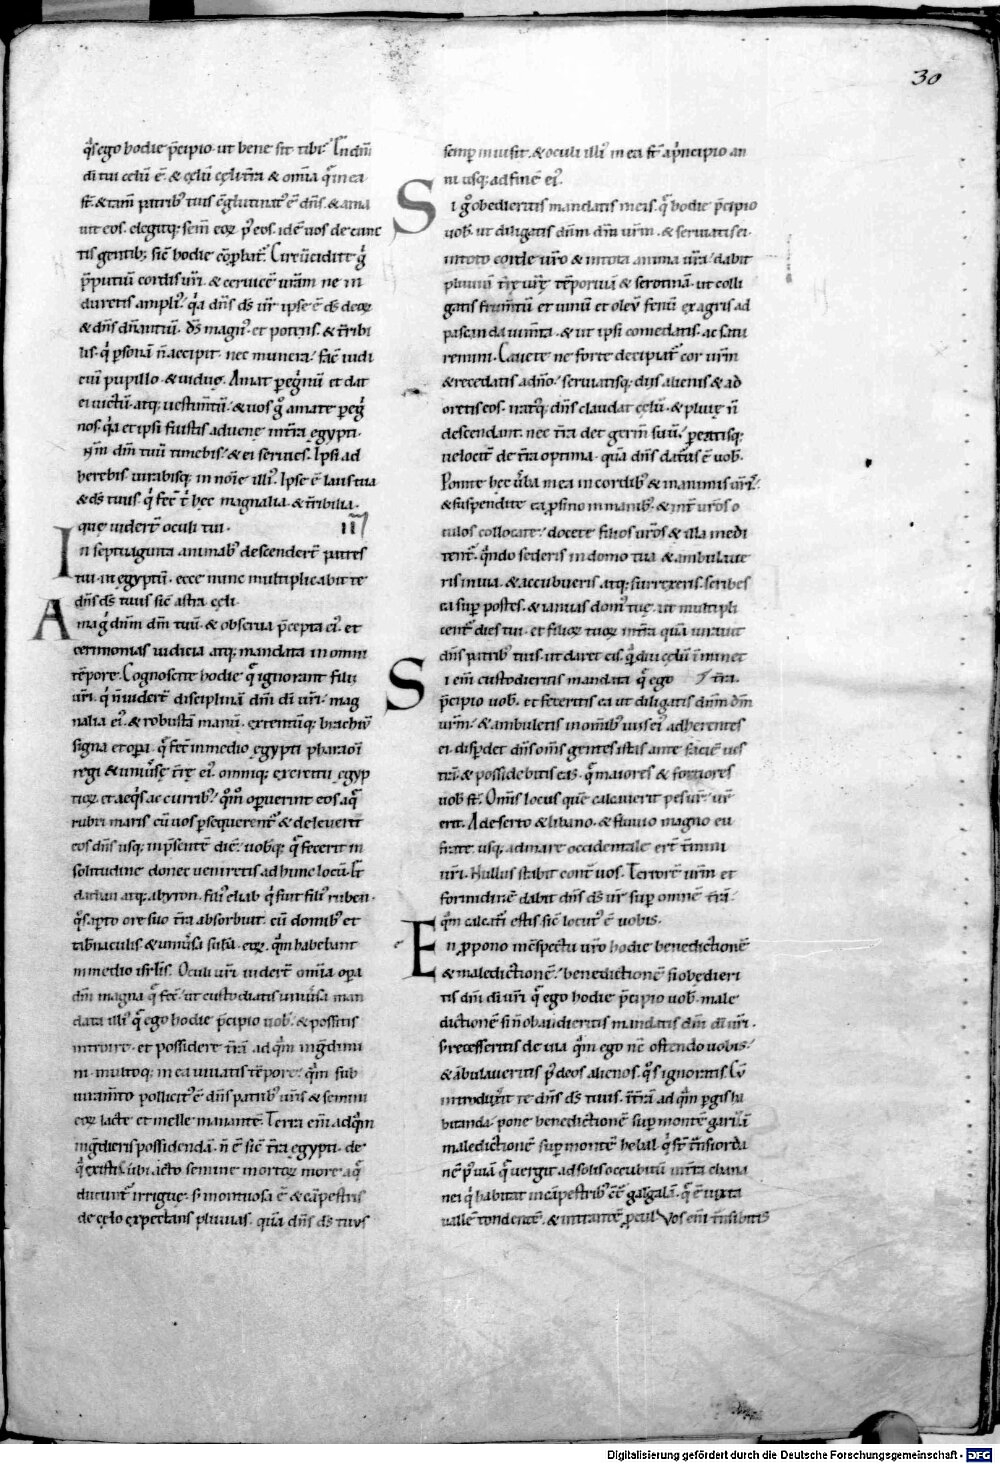 30
q̄s ego hodie p̄cipio· ut bene sit tibi· En dn̄i
di tui celū ē· & cęlū cęli· tr̄a & om̄ia q̄ in ea
st̄· & tam̄ patrib; tuis c̄glutinat; ē dn̄s· & ama
uit eos· elegitq; sem̄ eoꝝ p; eos· id ē uos de cunc
tis gentib; sic̄ hodie cōp̄bat̄· Circūcidite g̊
p̄putiū cordis ur̄i· & ceruicē ur̄am ne in
duretis ampli;· q̄a dn̄s ds̄ ur̄ ipse ē ds̄ deoꝝ
& dn̄s dn̄antiū· Ds̄ magn; et potens· & tr̄ibi
lis· q̇ ꝑsonā n̄ accipit· nec munera· facit̄ iudi
ciū pupillo & uiduę· Amat peg̊nū et dat
ei uictū atq; uestim̄tū· & uos g̊ amate peg̊
nos· q̄a et ipsi fuistis aduenę in tr̄a ęgypti·
dn̄m dm̄ tuū timebis· & ei seruies· Ipsi ad
herebis· iurabisq; in noīe illi;· Ipse ē laus tua
& ds̄ tuus· q̇ fec̄ t̄ hęc magnalia· & tr̄ibilia·
que uider̄t oculi tui·
In septuaginta animab; descender̄t patres
tui in ęgyptū· ecce nunc multiplicabit te
dn̄s ds̄ tuus sic̄ astra cęli·
Ama g̊ dn̄m dm̄ tuū· & obserua p̄cepta ei; et
cerimonias iudicia atq; mandata in omni
tēpore· Cognoscite hodie q̄ ignorant filii
ur̄i· q̇ n̄ uider̄t disciplinā dn̄i di ur̄i· mag
nalia ei; & robustā manū· extentūq; brachiū
signa et oꝑa· q̄ fec̄ in medio ęgypti pharaoi
regi & uniu̅sę tr̄ę ei; omniq; exercitui ęgyp
tioꝝ· et aeq̇s ac currib;· q̊m̊ oꝑuerint eos aq̄
rubri maris cū uos ꝑsequerent̄· & deleuerit
eos dn̄s usq; in p̄sentē diē· uobq; q̄ fecerit in
solitudine donec ueniretis ad hunc locū· Et
dathan atq; abyron· filii eliab q̇ fuit fili; ruben·
q̊s aꝑto ore suo tr̄a absorbuit· cū domib; et
tab̄naculis· & uniu̅sa subā· eoꝝ· q̄m habebant
in medio isrl̄is· Oculi ur̄i uider̄t om̄ia oꝑa
dn̄i magna q̄ fec̄· ut custodiatis uniu̅sa man
data illi; q̄ ego hodie p̄cipio uob̄· & possitis
introire· et possidere tr̄ā ad q̄m ing̊dimi
ni· multoq; in ea uiuatis tēpore· q̄m sub
iuram̄to pollicit; ē dn̄s patrib; ur̄is & semini
eoꝝ lacte et melle manantē· Terra em̄ ad q̄m
ing̊dieris possidendā· n̄ ē sic̄ tr̄a ęgypti· de
q̄ existi· ubi iacto semine in ortoꝝ more aq̄
ducunt̄ irriguę· s; montuosa ē & cāpestris
de cęlo expectans pluuias· quā dn̄s ds̄ tuus
semꝑ inuisit· & oculi illi; in ea st̄ a ṗncipio an
ni usq; ad finē ei;·
Si g̊ obedieritis mandatis meis· q̄ hodie p̄cipio
uob̄· ut diligatis dn̄m dm̄ ur̄m· & seruiatis ei·
in toto corde ur̄o & in tota anima ur̄a· dabit
pluuiā tr̄ę ur̄ę tēporiuā & serotinā· ut colli
gatis frum̄tū et uinū et oleū fenū ex agris ad
pascenda ium̄ta· & ut ipsi comedatis· ac satu
remini· Cauete ne forte decipiat̄ cor ur̄m
& recedatis a dn̄o· seruiatisq; diis alienis & ad
oretis eos· iratq; dn̄s claudat cęlū· & pluuię n̄
descendant· nec tr̄a det germ̄ suū· ꝑeatisq;
uelocit̄ de tr̄a optima· quā dn̄s datur; ē uob̄·
Ponite hęc u̅ba mea in cordib; & in animis ur̄i;·
& suspendite ea ꝑ signo in manib; & int̄ ur̄os o
culos collocate· docete filios ur̄os & illa medi
tent̄· q̄ndo sederis in domo tua & ambulaue
ris in uia· & accubueris atq; surrexeris· scribes
ea suꝑ postes· & ianuas dom; tuę· ut multipli
cent̄ dies tui· et filioꝝ tuoꝝ in tr̄a quā iurauit
dn̄s patrib; tuis· ut daret eis· q̊diu cęlū īminet
tr̄a·
Si em̄ custodieritis mandata q̄ ego
p̄cipio uob̄· et feceritis ea ut diligatis dn̄m dm̄
ur̄m· & ambuletis in om̄ib; uiis ei; adherentes
ei· disꝑdet dn̄s om̄s gentes istas ante faciē ues
trā· & possidebitis eas· q̄ maiores & fortiores
uob̄ st̄· Om̄is locus quē calcauerit pes ur̄· ur̄
erit· A deserto & libano· & fluuio magno eu
frate usq; ad mare occidentale er̄t t̄mini
ur̄i· Nullus stabit cont̄ uos· Terrorē ur̄m et
formidinē dabit dn̄s ds̄ ur̄ suꝑ omnē tr̄ā·
q̄m calcat̄i estis· sic̄ locut; ē uobis·
En ꝓpono in c̄spectu ur̄o hodie benedictionē
& maledictionē· benedictionē si obędieri
tis dn̄i di ur̄i q̄ ego hodie p̄cipio uob̄· male
dictionē si n̄ obaudieritis mandatis dn̄i di ur̄i·
s; recesseritis de uia q̄m ego nc̄ ostendo uobis·
& ābulaueritis p; deos alienos· q̊s ignoratis· Cū
introdux̄it te dn̄s ds̄ tuus· ī tr̄ā ad q̄m ꝑgis ha
bitandā· pone benedictionē suꝑ montē garizī
maledictionē suꝑ montē hebal· q̇ st̄ t̄ns iorda
nē p; uiā q̄ uergit ad solis occubitū in tr̄a chana
nei q̇ habitat in cāpestrib; c̄t̄ galgalā· q̄ ē iuxta
uallē tendentē· & intrantē ꝓcul· Vos em̄ t̄nsibitis
Digitalisierung gefördert durch die Deutsche Forschungsgemeinschaft - DFG